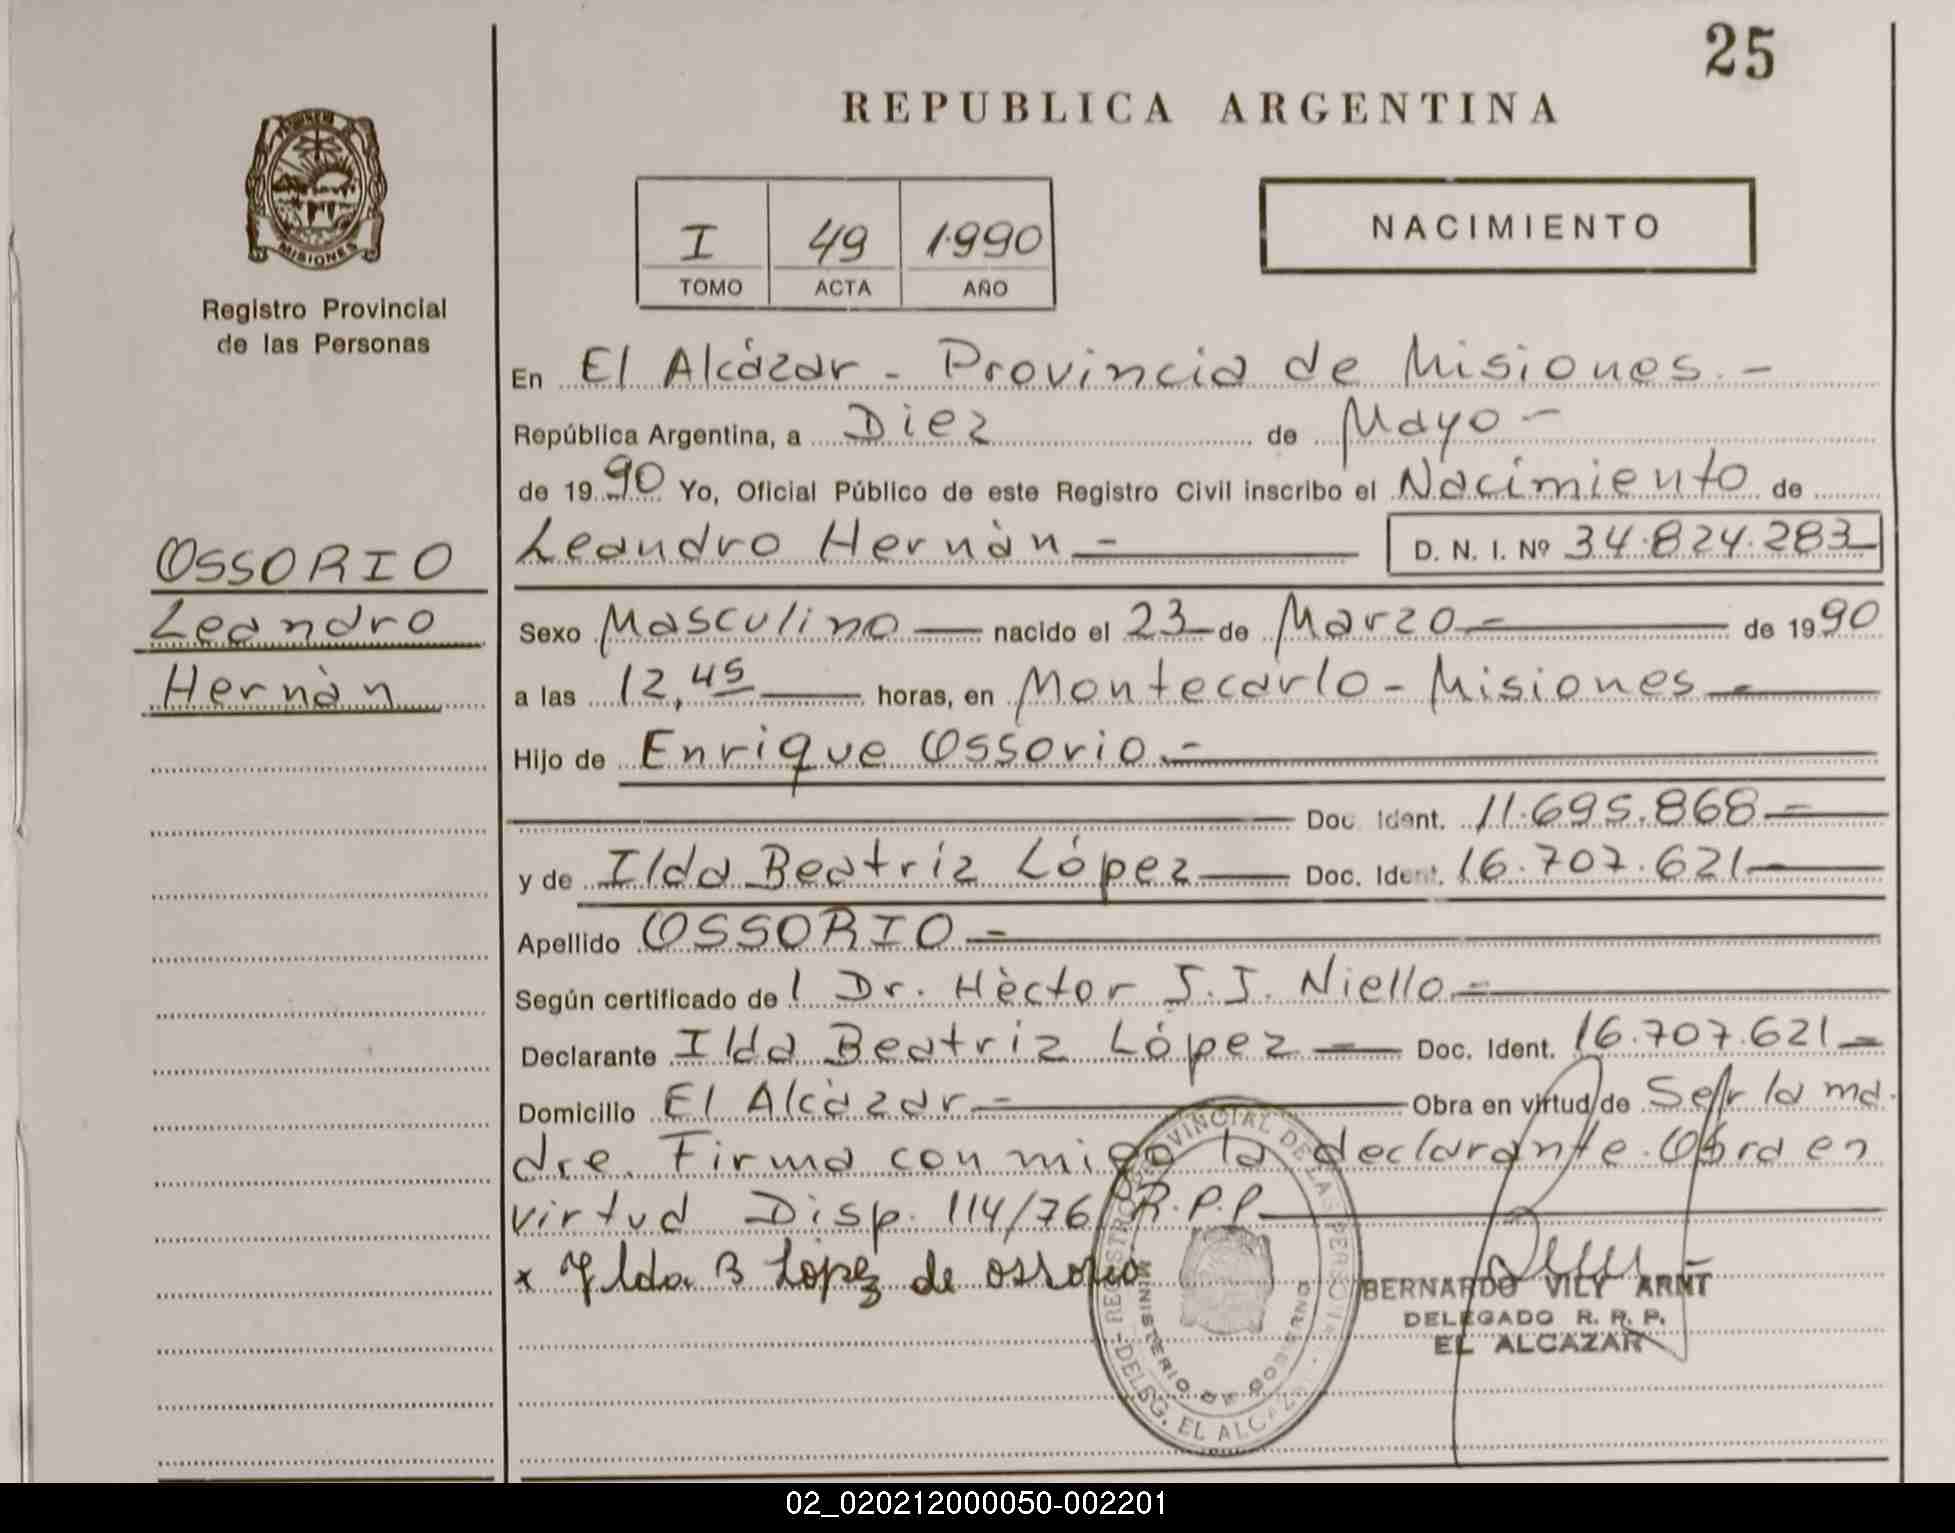 25
REPUBLICA ARGENTINA
MISIONES
Registro Provincial
de las Personas
I 49 1.990
TOMO ACTA AÑO
NACIMIENTO
En El Alcázar - Provincia de Misiones. -
República Argentina, a Diez de Mayo -
de 1990 Yo, Oficial Público de este Registro Civil inscribo el Nacimiento de
Leandro Hernàn - D. N. I. Nº 34.824.283
OSSORIO
Leandro
Hernàn
Sexo Masculino nacido el 23 de Marzo de 1990
a las 12,45 horas, en Montecarlo - Misiones -
Hijo de Enrique Ossorio. -
Doc. Ident. 11.695.868 -
y de Ilda Beatriz López Doc. Ident. 16.707.621 -
Apellido OSSORIO -
Según certificado de l Dr. Hèctor J.J. Niello. -
Declarante Ilda Beatriz López - Doc. Ident. 16.707.621 -
Domicilio El Alcàzar - Obra en virtud de Ser la ma-
dre. Firma con migo la declarante. Obra en
virtud Disp. 114/76 R.P.P.
x Ylda B López de ossorio
REGISTRO PROVINCIAL DE LAS PERSONAS
MINISTERIO DE GOBIERNO
DELEG. EL ALCAZAR
BERNARDO VILY ARNT
DELEGADO R. P. P.
EL ALCAZAR
02_020212000050-002201